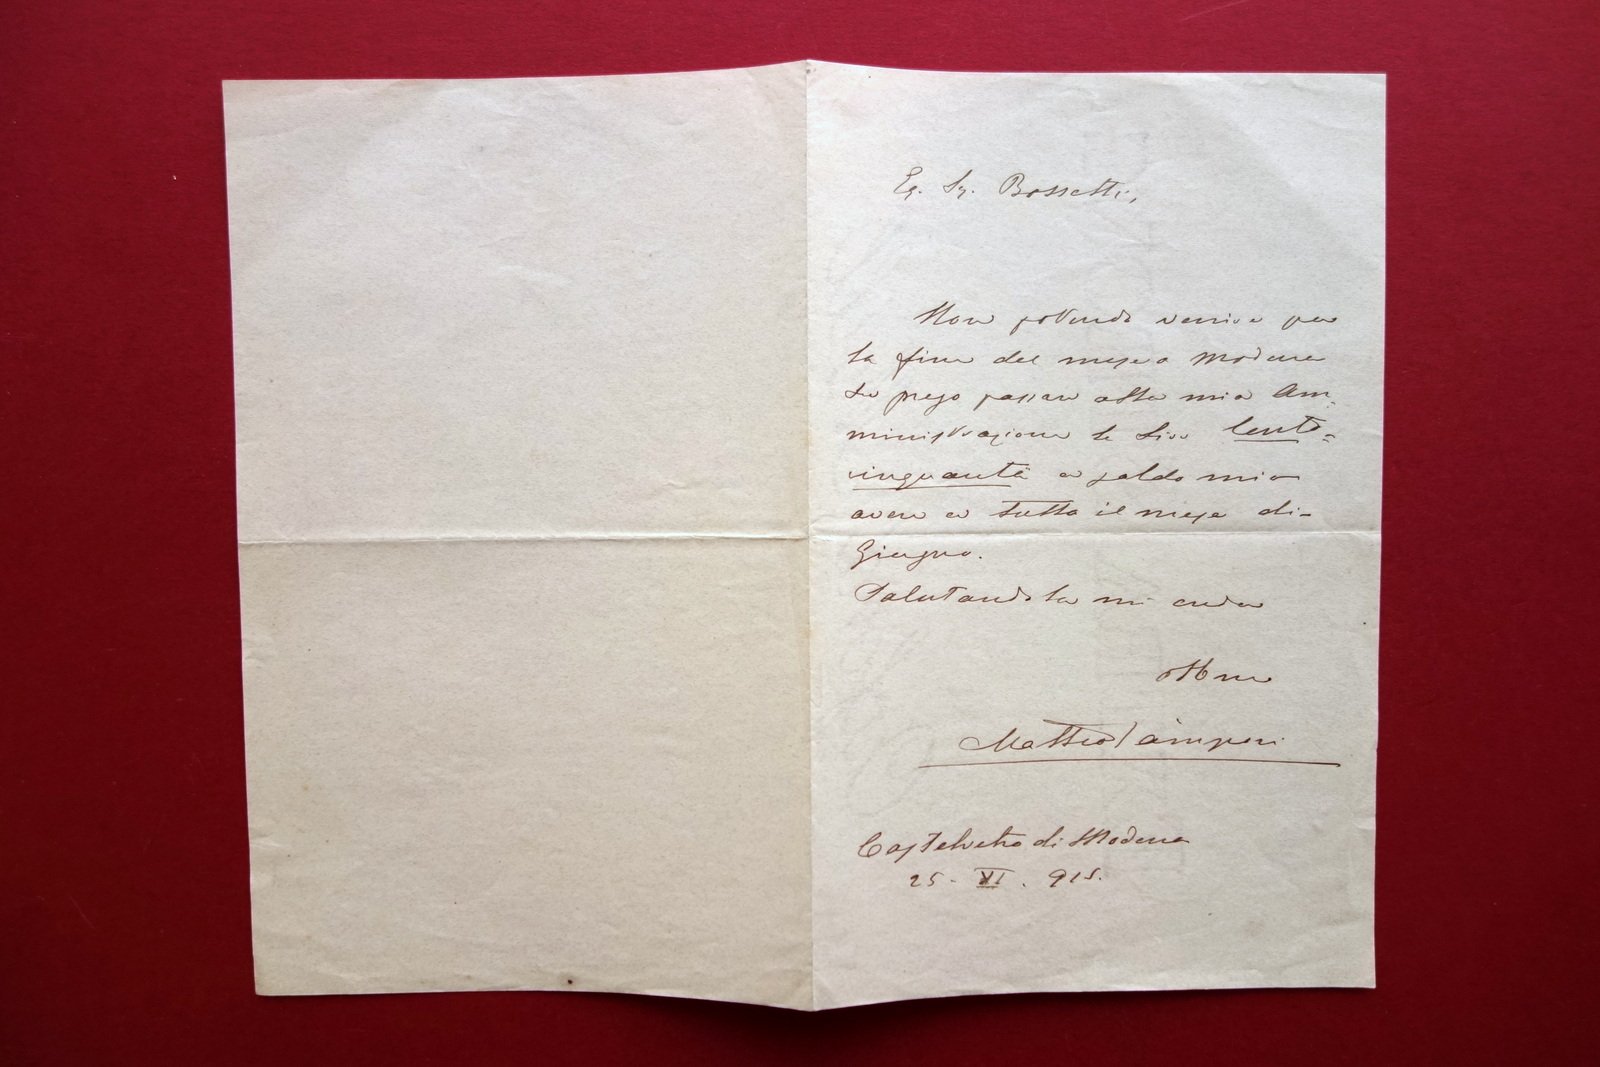 Eg. Sg. Bossetti,
Non potendo venire per
la fine del mese a Modena
La prego passare alla mia Am-
ministrazione le Lire Cento-
cinquanta a saldo mio
avere a tutto il mese di-
Giugno.
Salutandola mi creda
Matteo
Castelvetro di Modena
25 - VI. 915.